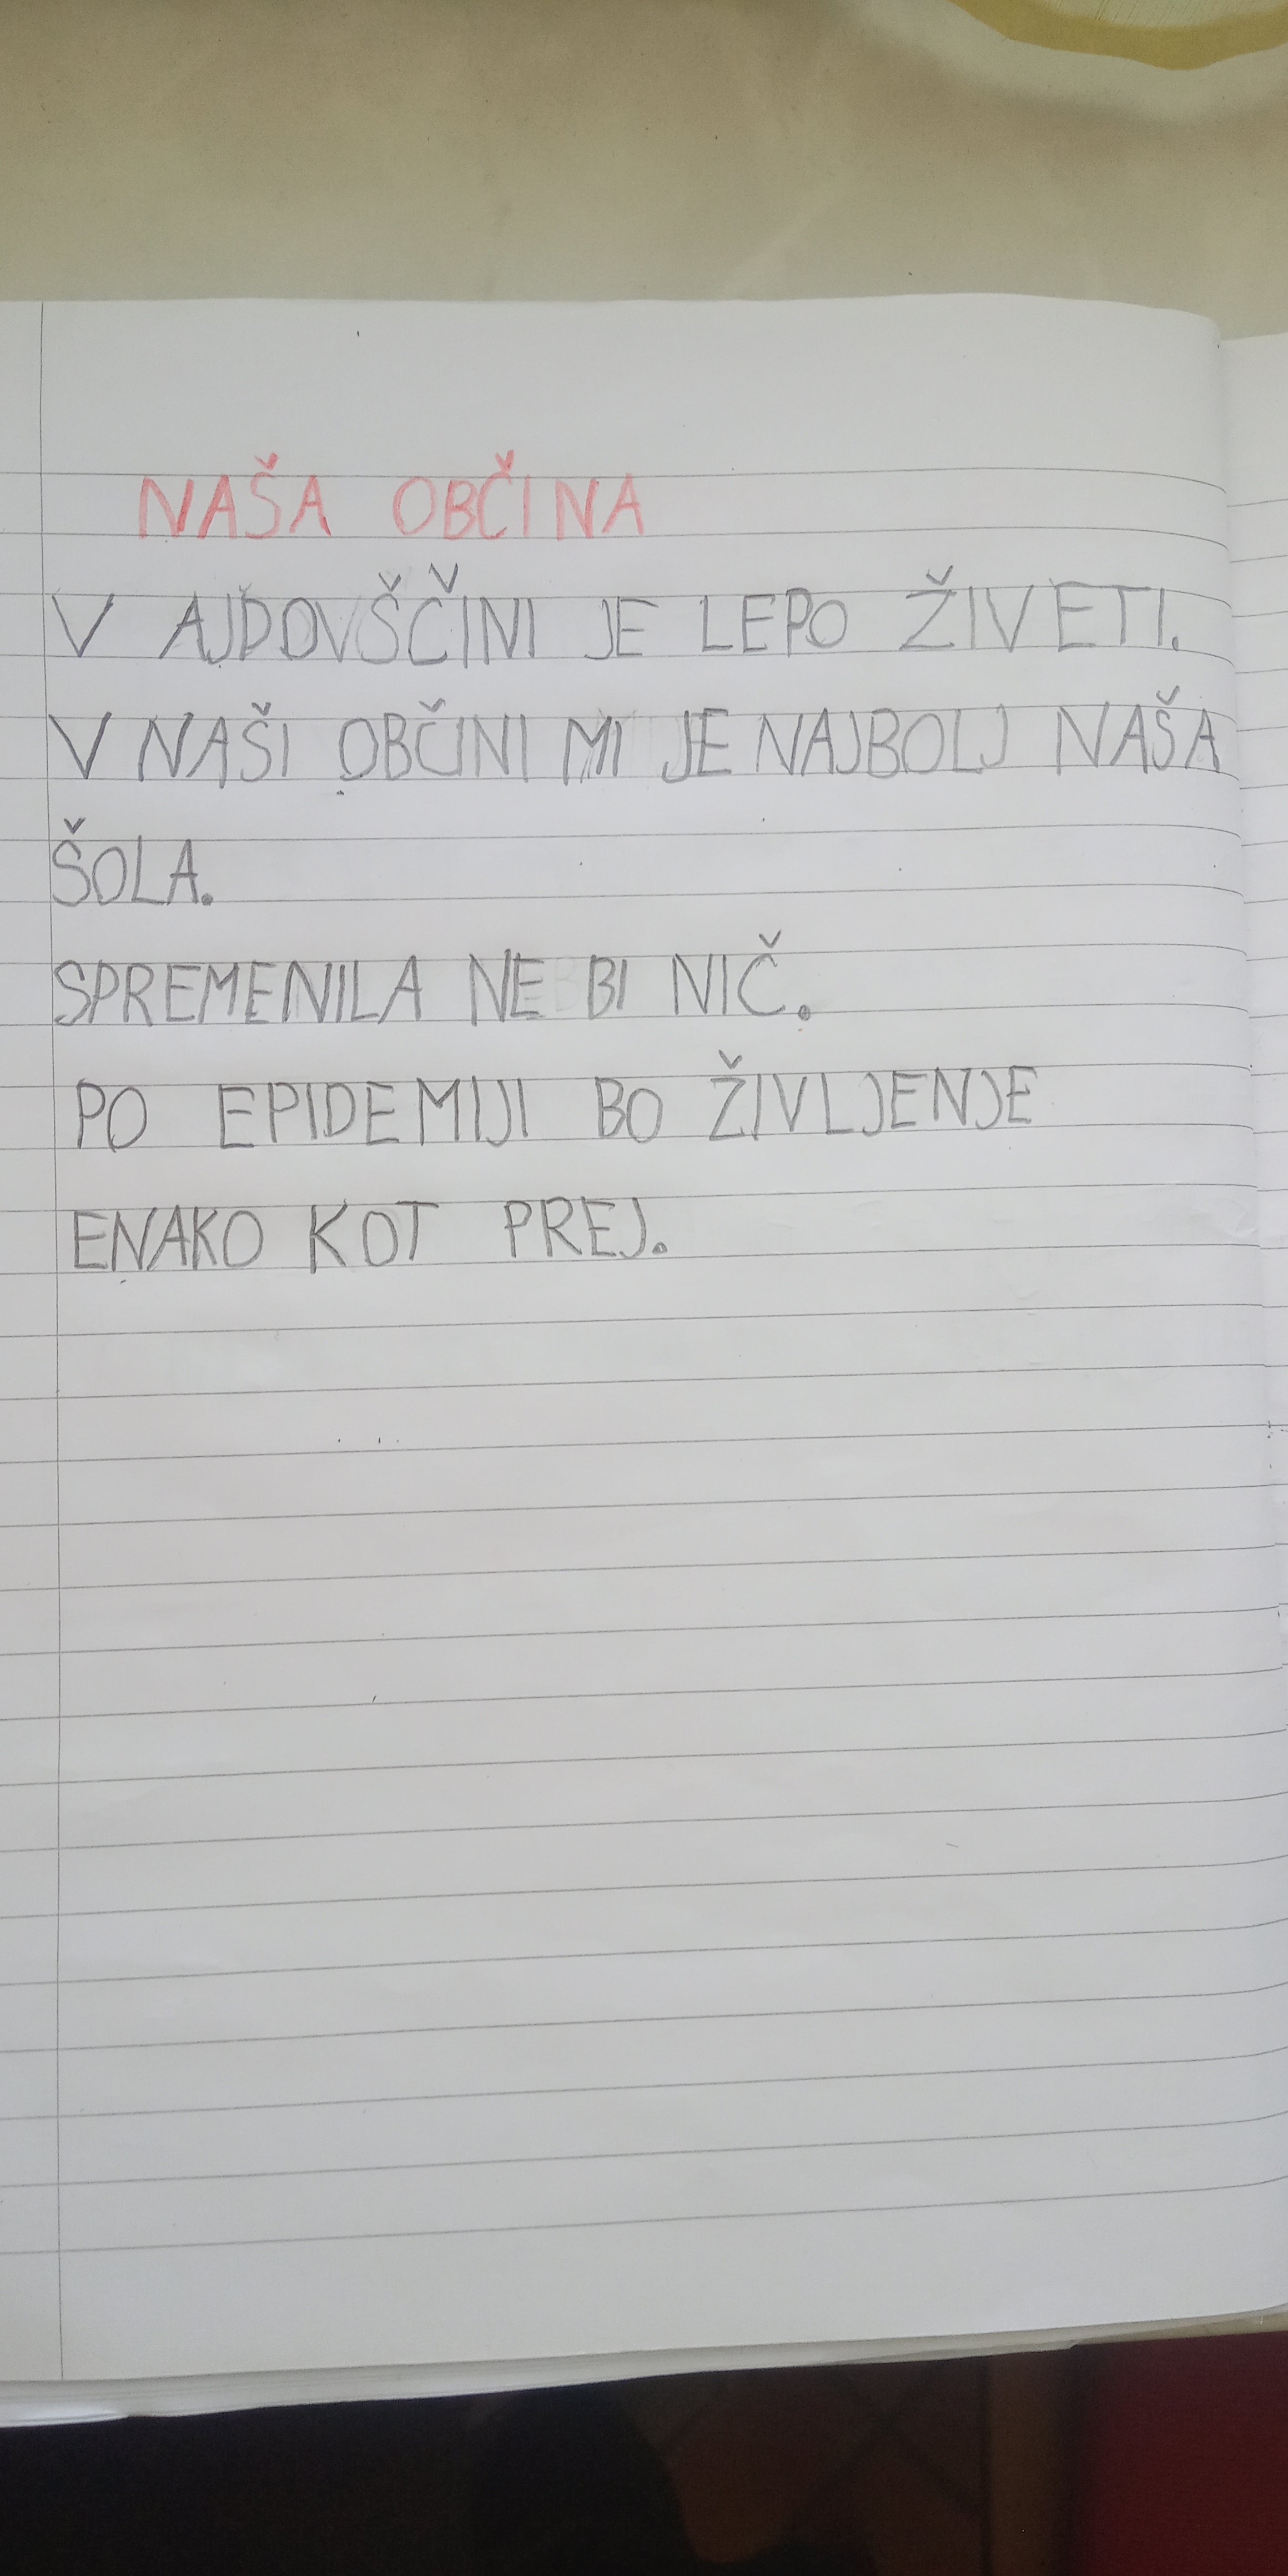 NAŠA OBČINA
V AJDOVŠČINI JE LEPO ŽIVETI.
V NAŠI OBČINI MI JE NAJBOLJ NAŠA
ŠOLA.
SPREMENILA NE BI NIČ.
PO EPIDEMIJI BO ŽIVLJENJE
ENAKO KOT PREJ.